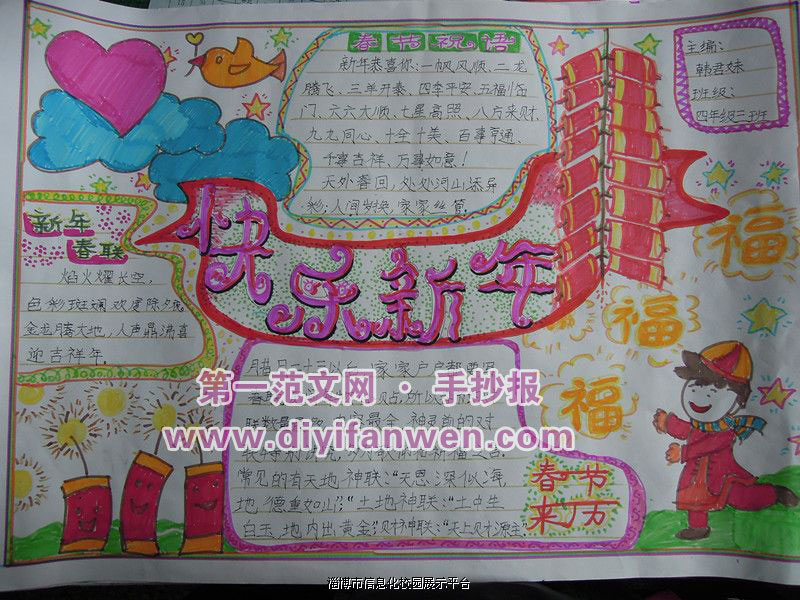 春节祝语
新年恭喜你:一帆风顺、二龙
腾飞、三羊开泰、四季平安、五福临
门、六六大顺、七星高照、八方来财、
九九同心、十全十美、百事亨通、
千事吉祥、万事如意!
天外春回,处处河山添异
彩;人间岁换,家家丝管
主编:
韩君妹
班级:
四年级三班
新年
春联
焰火耀长空,
色彩斑斓欢度除夕夜
金龙腾大地,人声鼎沸喜
迎吉祥年.
快乐新年
福
福
福
腊月二十
家家户户都要
春联
第一范文网 · 手抄报
www.diyifanwen.com
常见的有天地神联:“天恩深似海
地德重如山;”土地神联:“土中生
白玉,地内出黄金”,财神联:“天上财源主
春节
来历
淄博市信息化校园展示平台